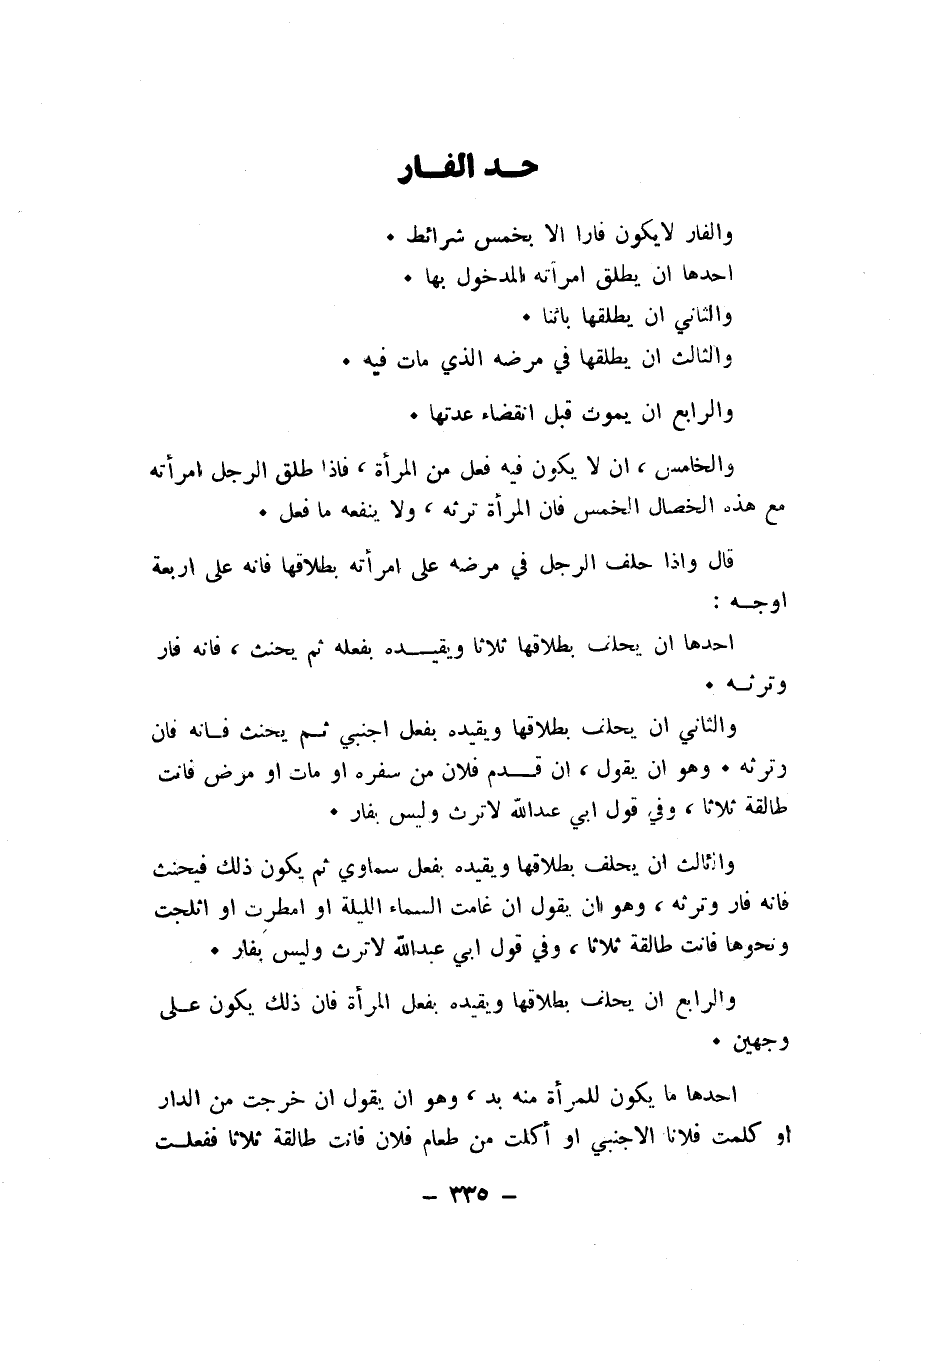 حـد الفـار
والفار لايكون فارا الا بخمس شرائط ٠
احدها ان يطلق امرأته المدخول بها ٠
والثاني ان يطلقها بائنا ٠
والثالث ان يطلقها في مرضه الذي مات فيه ٠
والرابع ان يموت قبل انقضاء عدتها ٠
والخامس ، ان لا يكون فيه فعل من المرأة ، فاذا طلق الرجل امرأته
مع هذه الخصال الخمس فان المرأة ترثه ، ولا ينفعه ما فعل ٠
قال واذا حلف الرجل في مرضه على امرأته بطلاقها فانه على اربعة
اوجـه :
احدها ان يحلف بطلاقها ثلاثا ويقيـــده بفعله ثم يحنث ، فانه فار
وترثـه ٠
والثاني ان يحلف بطلاقها ويقيده بفعل اجنبي ثـم يحنث فـانه فان
رترثه ٠ وهو ان يقول ، ان قـــدم فلان من سفره او مات او مرض فانت
طالقة ثلاثا ، وفي قول ابي عبدالله لاترث وليس بفار ٠
والثالث ان يحلف بطلاقها ويقيده بفعل سماوي ثم يكون ذلك فيحنث
فانه فار وترثه ، وهو ان يقول ان غامت السماء الليلة او امطرت او اثلجت
ونحوها فانت طالقة ثلاثا ، وفي قول ابي عبدالله لاترث وليس بفار ٠
والرابع ان يحلف بطلاقها ويقيده بفعل المرأة فان ذلك يكون علـى
وجهين ٠
احدها ما يكون للمرأة منه بد ، وهو ان يقول ان خرجت من الدار
او كلمت فلانا الاجنبي او أكلت من طعام فلان فانت طالقة ثلاثا ففعلـت
– ٣٣٥ –